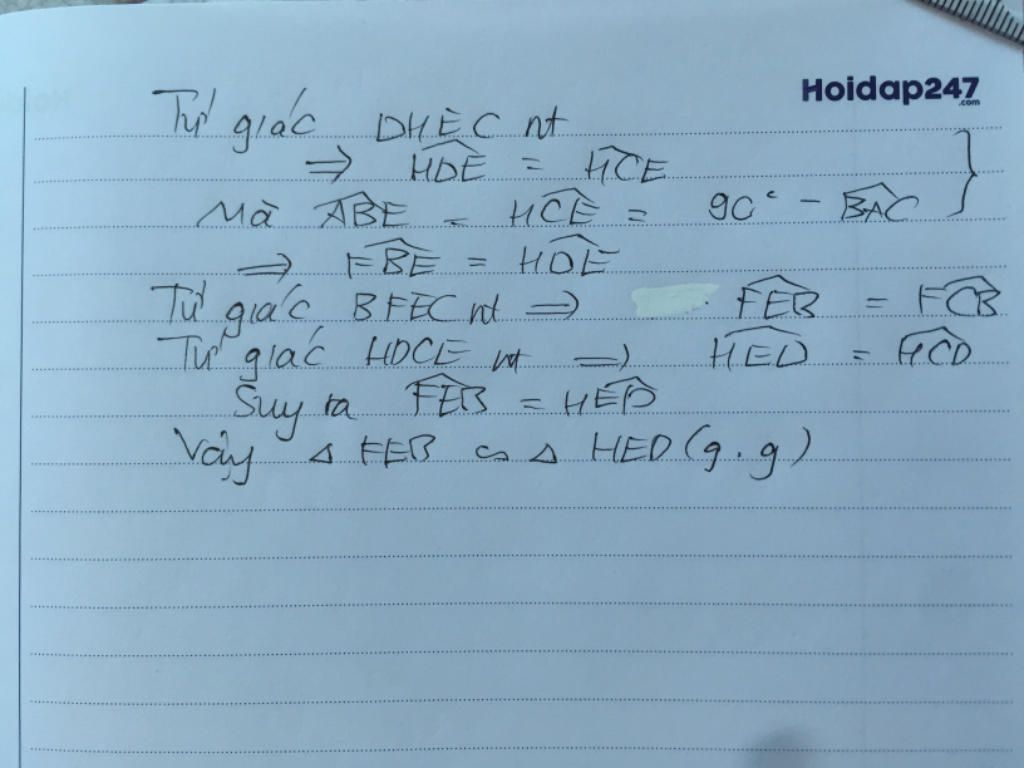 Hoidap247
.com
Tứ giác DHEC nt
⇒ \widehat{HDE} = \widehat{HCE}
Mà \widehat{ABE} = \widehat{HCE} = 90° - \widehat{BAC} }
⇒ \widehat{FBE} = \widehat{HDE}
Tứ giác BFEC nt ⇒ \widehat{FEB} = \widehat{FCB}
Tứ giác HDCE nt ⇒ \widehat{HED} = \widehat{HCD}
Suy ra \widehat{FEB} = \widehat{HED}
Vậy △ FEB ∽ △ HED (g.g)